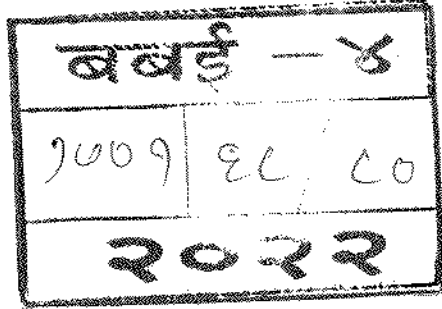 बबई - ४
१७०१ ६८ / ८०
२०२२